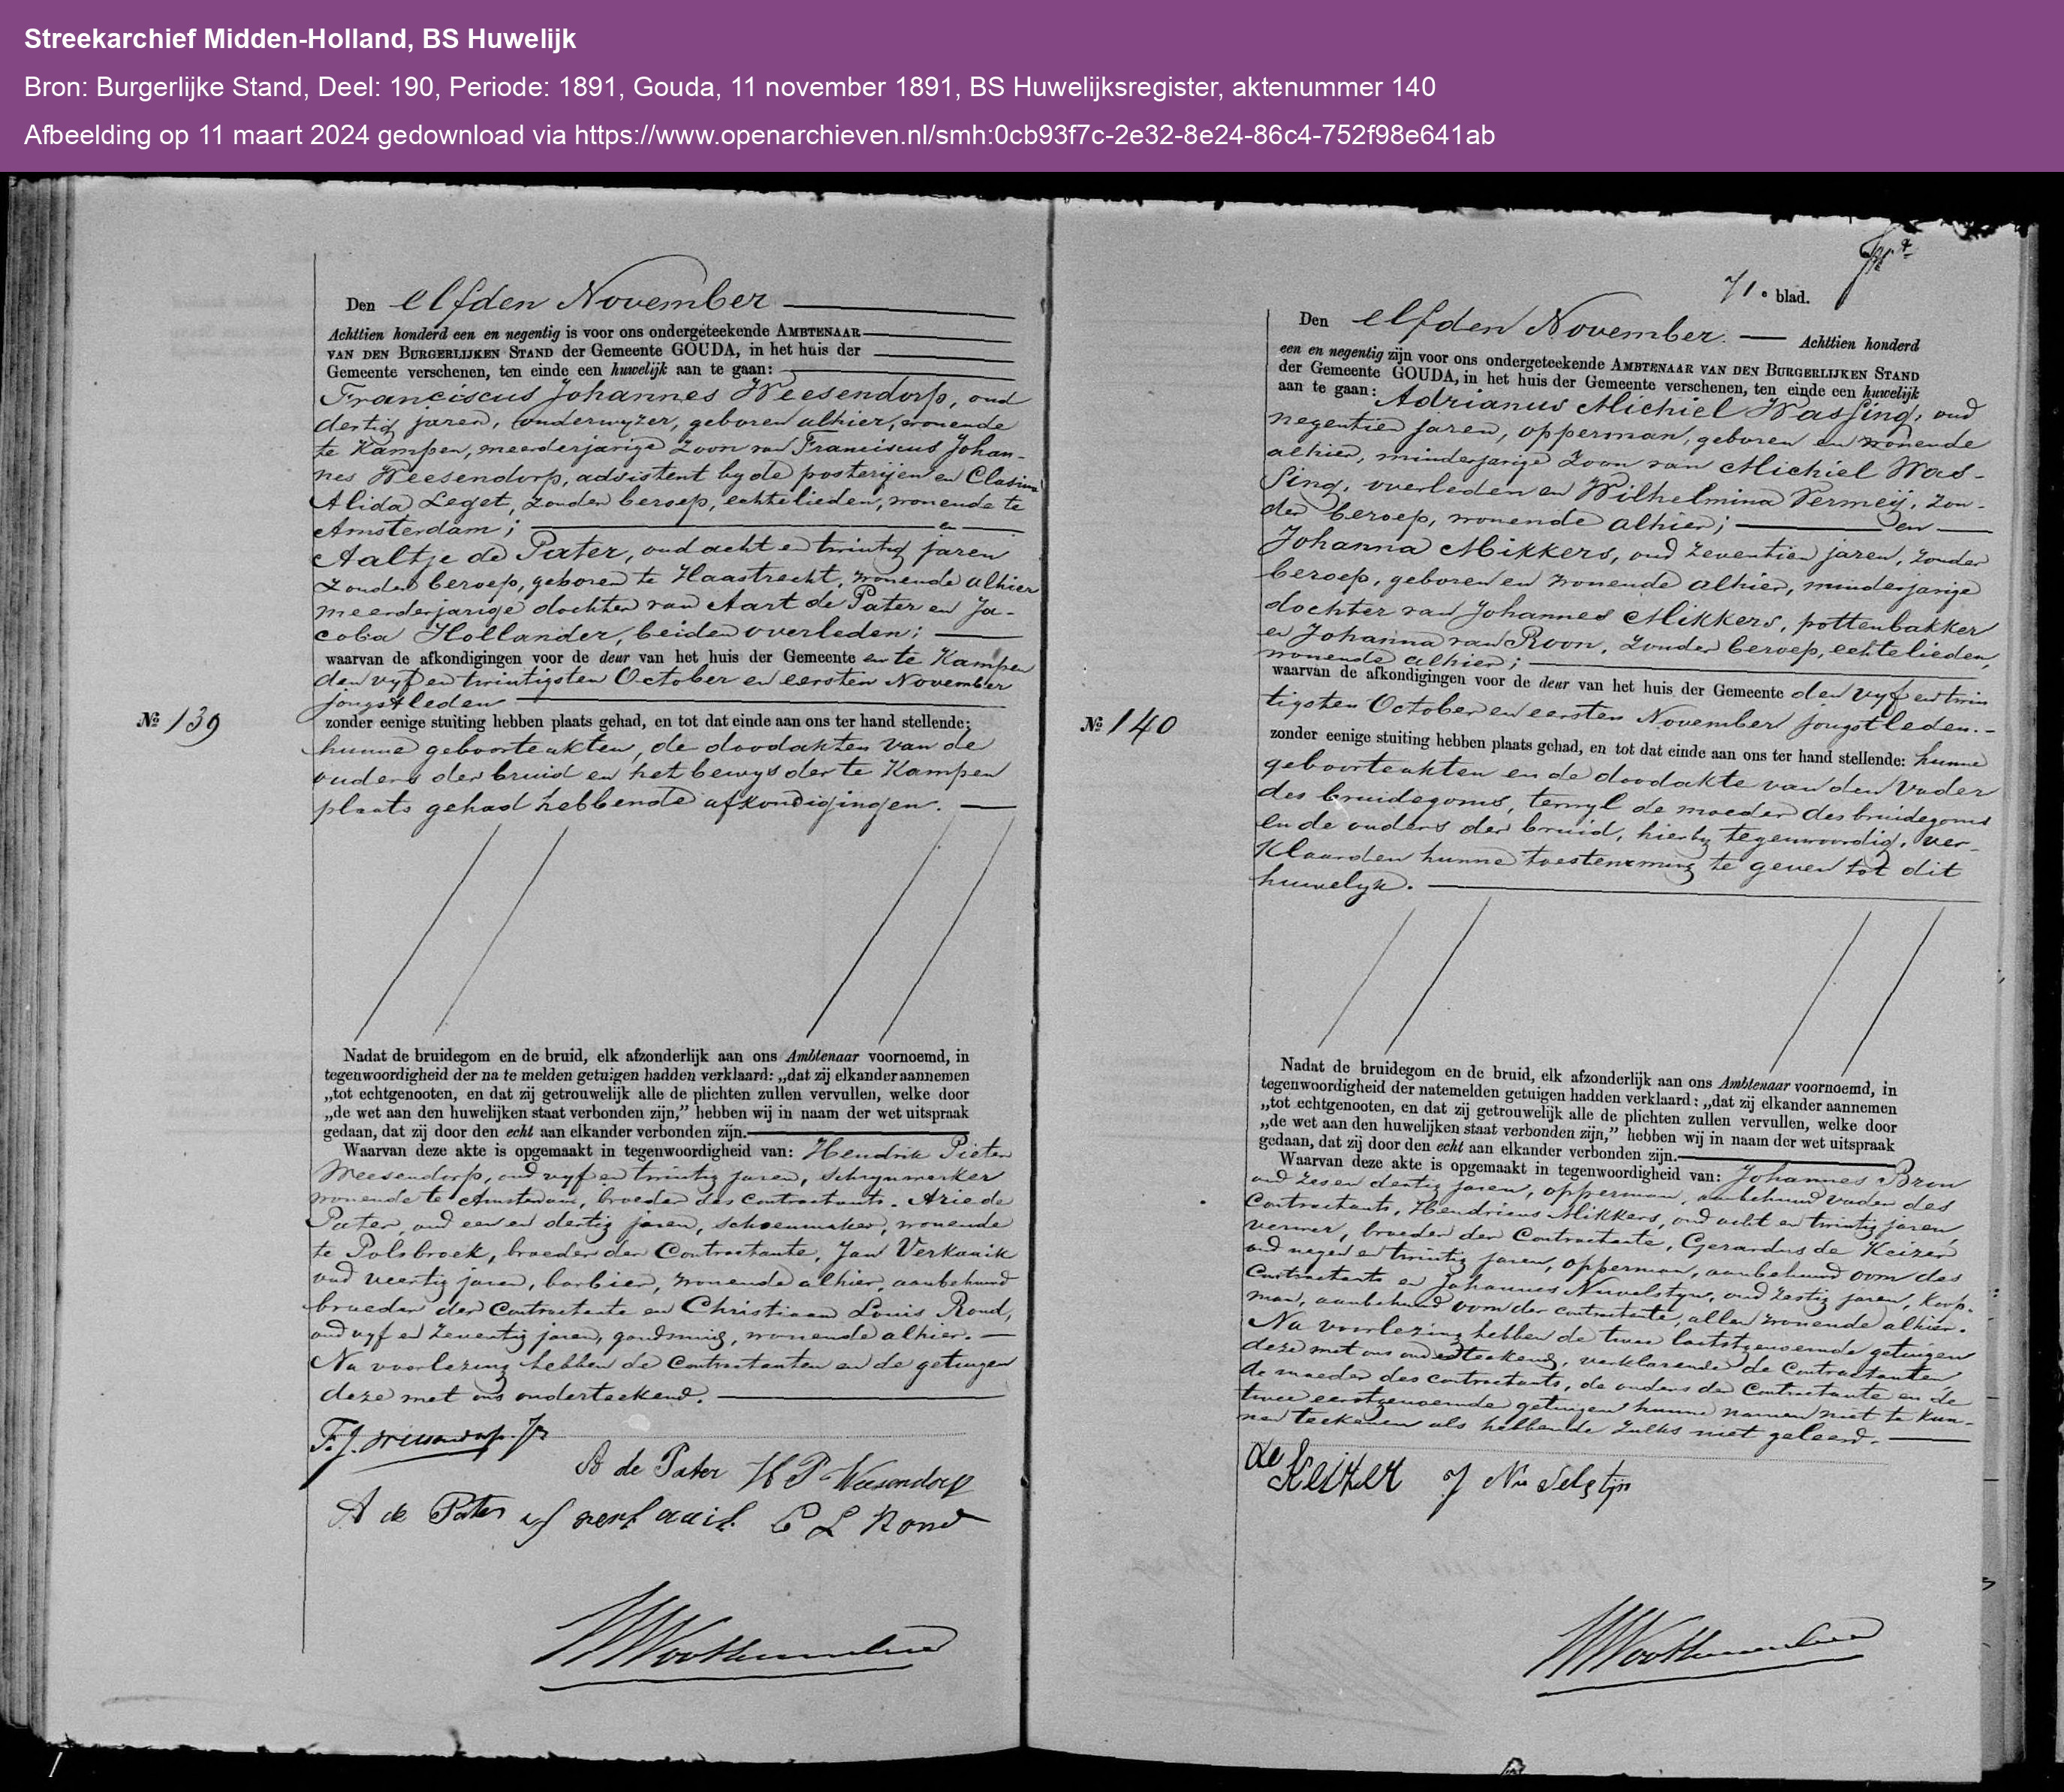 Streekarchief Midden-Holland, BS Huwelijk
Bron: Burgerlijke Stand, Deel: 190, Periode: 1891, Gouda, 11 november 1891, BS Huwelijksregister, aktenummer 140
Afbeelding op 11 maart 2024 gedownload via https://www.openarchieven.nl/smh:0cb93f7c-2e32-8e24-86c4-752f98e641ab
Den elfden November
Achttien honderd een en negentig is voor ons ondergeteekende AMBTENAAR
VAN DEN BURGERLIJKEN STAND der Gemeente GOUDA, in het huis der
Gemeente verschenen, ten einde een huwelijk aan te gaan:
Franciscus Johannes Weesendorp, oud
dertig jaren, onderwyzer, geboren alhier, wonende
te Kampen, meerderjarige zoon van Franciscus Johan-
nes Weesendorp, adsistent by de posterijen en Clasina
Alida Leget, zonder beroep, echtelieden, wonende te
Amsterdam; en
Aaltje de Pater, oud acht en twintig jaren
zonder beroep, geboren te Haastrecht, wonende alhier
meerderjarige dochter van Aart de Pater en Ja-
coba Hollander, beiden overleden;
waarvan de afkondigingen voor de deur van het huis der Gemeente en te Kampen
den vyf en twintigsten October en eersten November
jongstleden
zonder eenige stuiting hebben plaats gehad, en tot dat einde aan ons ter hand stellende:
No 139
hunne geboorteakten, de doodakten van de
ouders der bruid en het bewys der te Kampen
plaats gehad hebbende afkondigingen.
Nadat de bruidegom en de bruid, elk afzonderlijk aan ons Ambtenaar voornoemd, in
tegenwoordigheid der na te melden getuigen hadden verklaard: „dat zij elkander aannemen
„tot echtgenooten, en dat zij getrouwelijk alle de plichten zullen vervullen, welke door
„de wet aan den huwelijken staat verbonden zijn,” hebben wij in naam der wet uitspraak
gedaan, dat zij door den echt aan elkander verbonden zijn.
Waarvan deze akte is opgemaakt in tegenwoordigheid van: Hendrik Pieter
Weesendorp, oud vyf en twintig jaren, schrynwerker
wonende te Amsterdam, broeder des Contractants. Arie de
Pater, oud een en dertig jaren, schoenmaker, wonende
te Polsbroek, broeder der Contractante, Jan Verkaaik
oud veertig jaren, barbier, wonende alhier, aanbehuwd
broeder der Contractante en Christiaan Louis Rond,
oud vyf en zeventig jaren, goudsmid, wonende alhier.
Na voorlezing hebben de Contractanten en de getuigen
deze met ons onderteekend.
F. J. Weesendorp Jr
A de Pater H P Weesendorp
A de Pater J verkaaik C L Rond
71e blad.
Den elfden November. Achttien honderd
een en negentig zijn voor ons ondergeteekende AMBTENAAR VAN DEN BURGERLIJKEN STAND
der Gemeente GOUDA, in het huis der Gemeente verschenen, ten einde een huwelijk
aan te gaan: Adrianus Michiel Wassing, oud
negentien jaren, opperman, geboren en wonende
alhier, minderjarige zoon van Michiel Was-
sing, overleden en Wilhelmina Vermeij, zon-
der beroep, wonende alhier; en
Johanna Mikkers, oud zeventien jaren, zonder
beroep, geboren en wonende alhier, minderjarige
dochter van Johannes Mikkers, pottenbakker
en Johanna van Roon, zonder beroep, echtelieden,
wonende alhier;
waarvan de afkondigingen voor de deur van het huis der Gemeente den vyf en twin
tigsten October en eersten November jongstleden.
No 140
zonder eenige stuiting hebben plaats gehad, en tot dat einde aan ons ter hand stellende: hunne
geboorteakten en de doodakte van den Vader
des bruidegoms, terwyl de moeder des bruidegoms
en de ouders der bruid, hierby tegenwoordig, ver-
klaarden hunne toestemming te geven tot dit
huwelyk.
Nadat de bruidegom en de bruid, elk afzonderlijk aan ons Ambtenaar voornoemd, in
tegenwoordigheid der natemelden getuigen hadden verklaard: „dat zij elkander aannemen
„tot echtgenooten, en dat zij getrouwelijk alle de plichten zullen vervullen, welke door
„de wet aan den huwelijken staat verbonden zijn,” hebben wij in naam der wet uitspraak
gedaan, dat zij door den echt aan elkander verbonden zijn.
Waarvan deze akte is opgemaakt in tegenwoordigheid van: Johannes Bron
oud zes en dertig jaren, opperman, aanbehuwd vader des
Contractants, Hendricus Mikkers, oud acht en twintig jaren,
verwer, broeder der Contractante, Gerardus de Keizer
oud negen en twintig jaren, opperman, aanbehuwd oom des
Contractants en Johannes Nuvelstyn, oud zestig jaren, koop-
man, aanbehuwd oom der contractante, allen wonende alhier.
Na voorlezing hebben de twee laatstgenoemde getuigen
deze met ons onderteekend, verklarende de Contractanten
de moeder des contractants, de ouders der Contractante en de
twee eerstgenoemde getuigen hunne namen niet te kun-
nen teekenen als hebbende zulks niet geleerd.
de Keizer J Nuvelstijn